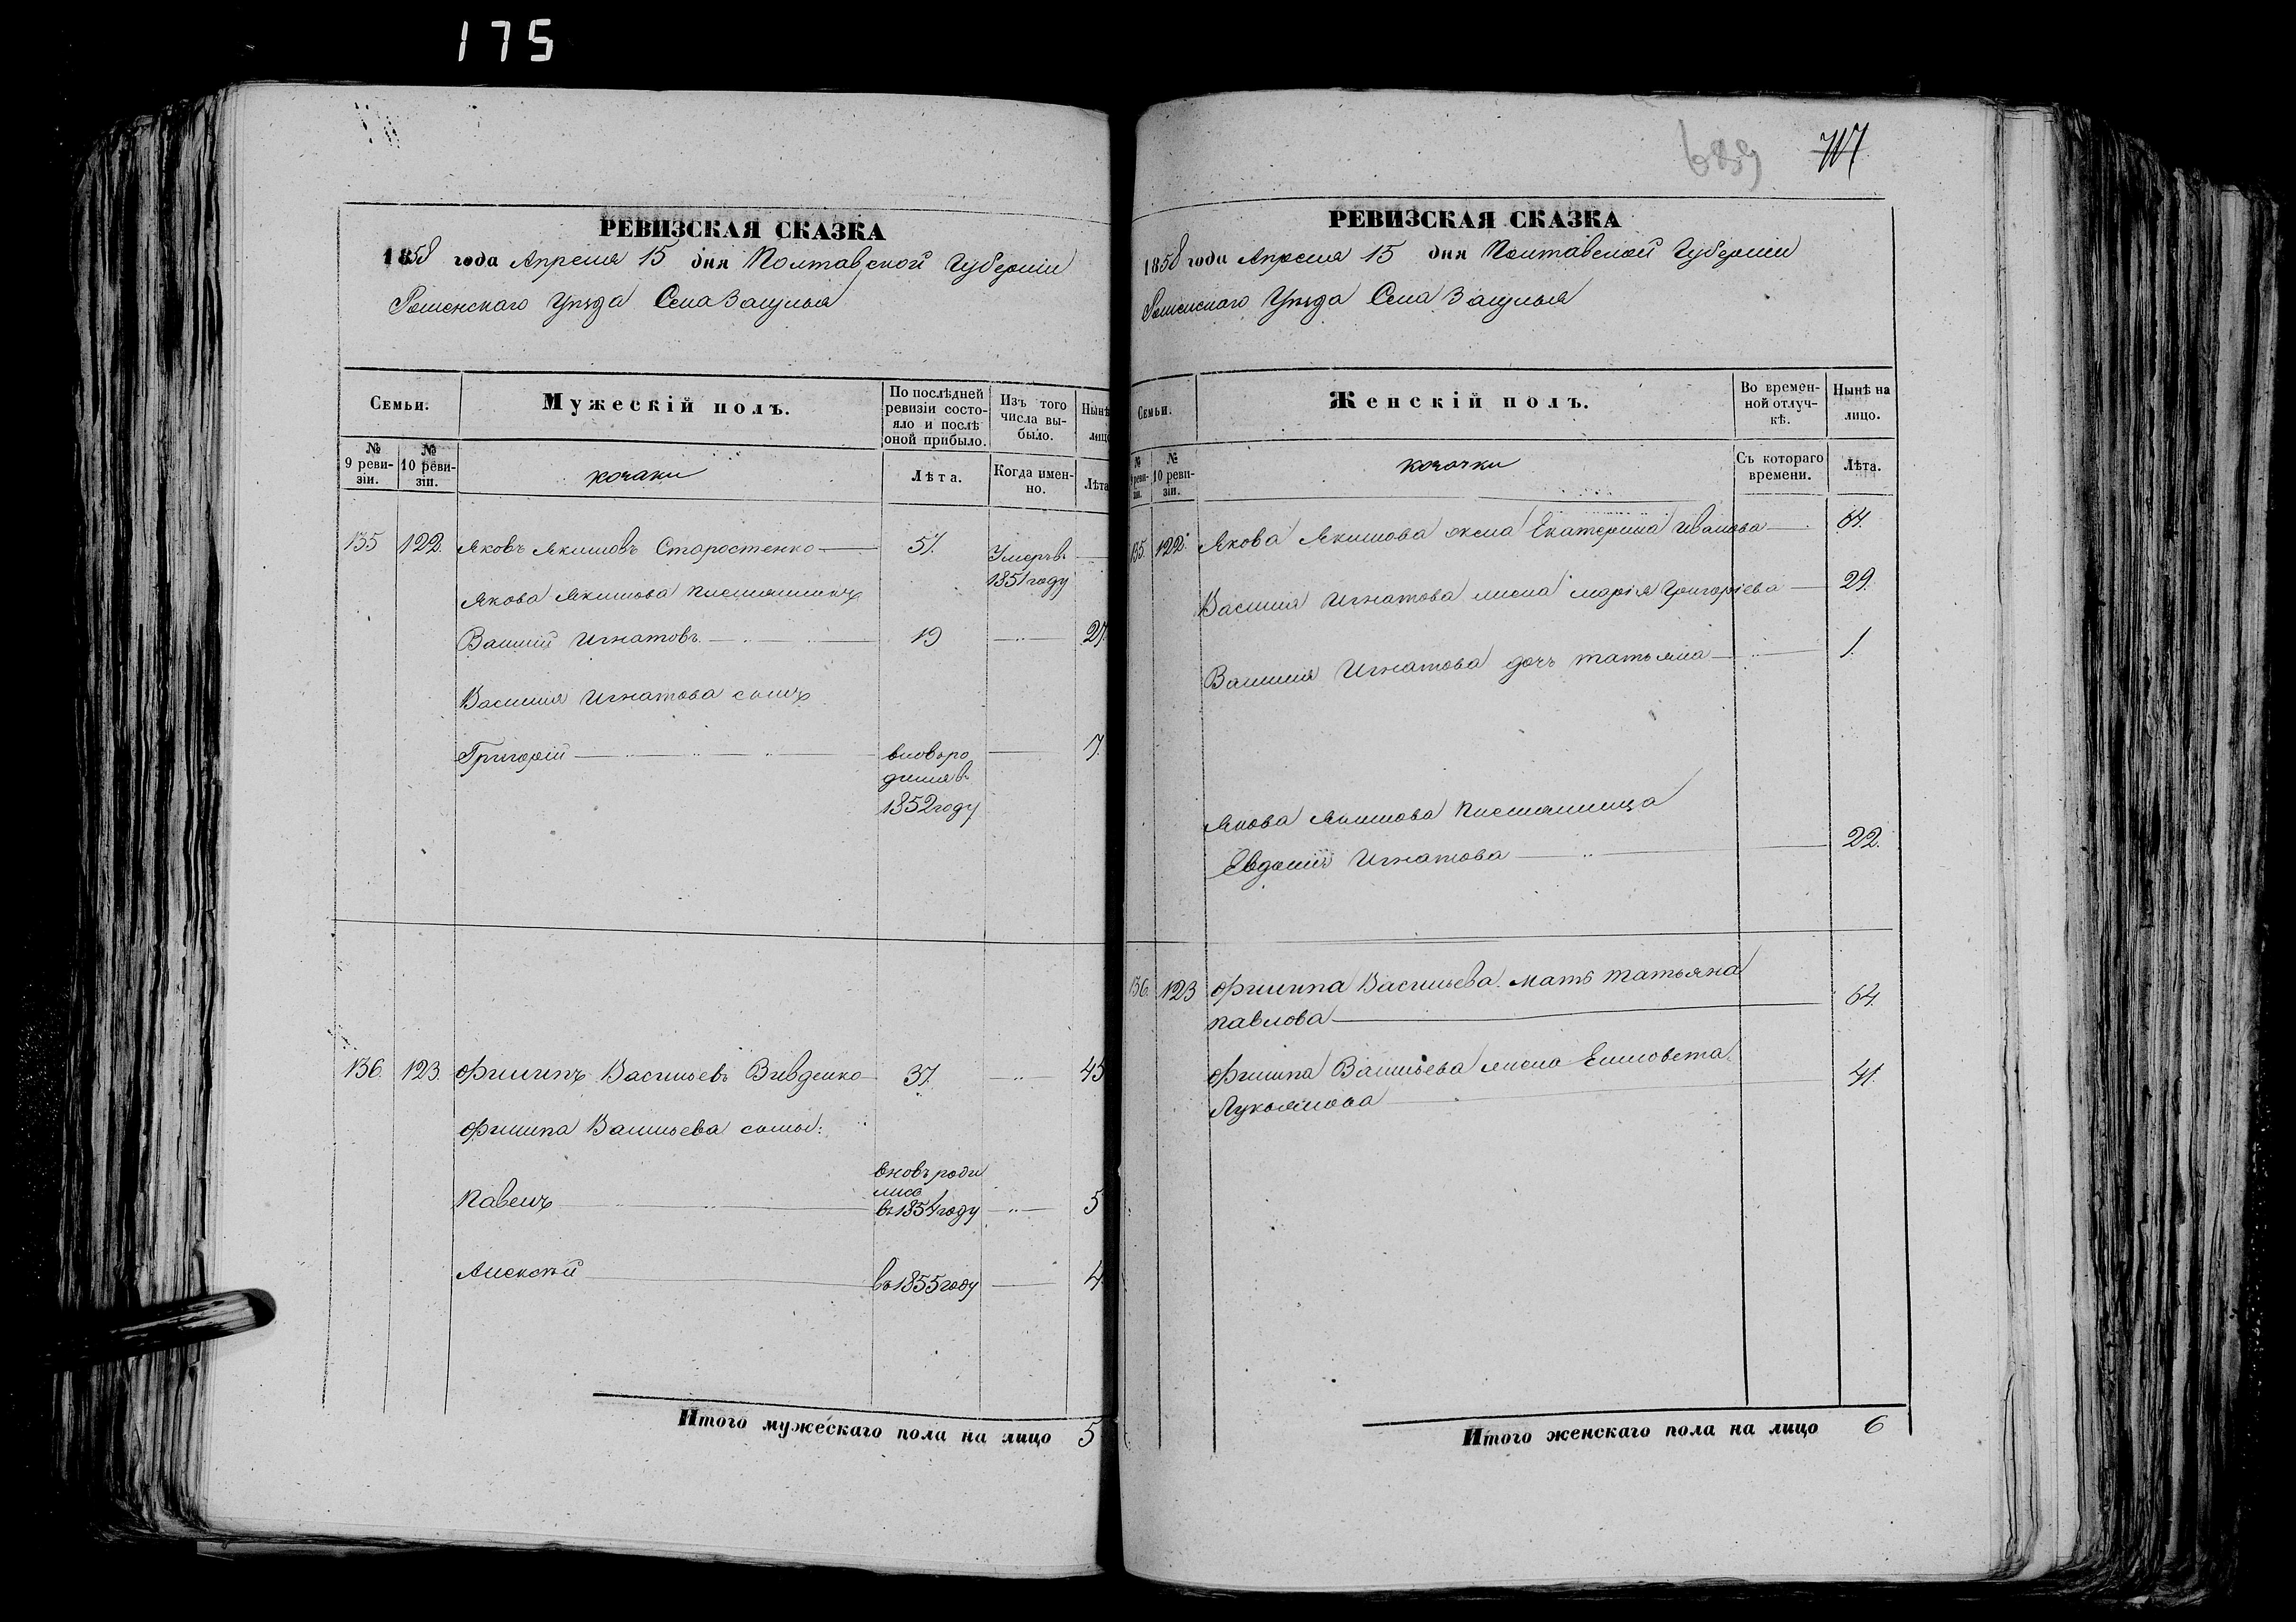 175
РЕВИЗСКАЯ СКАЗКА
1858 года Апреля 15 дня Полтавской Губернии
Роменскаго Уезда Села Засулья
Семьи.
Мужескій полъ.
По послѣдней ревизіи состояло и послѣ оной прибыло.
Изъ того числа выбыло.
Нынѣ
лицо
№ 9 ревизіи.
№ 10 ревизіи.
козаки
Лѣта.
Когда именно.
Лѣта
135 122. Яковъ Якимовъ Старостенко 51. Умеръ в
1851 году
Якова Якимова племянникъ
Василій Игнатовъ 19 27.
Василия Игнатова сынъ
Григорій вновь ро 7.
дился в
1852 году
136. 123. Филипъ Васильевъ Вивденко 37. 45
Филипа Васильева сыны:
вновь роди
лись
Павелъ въ 1854 году 5
Алексѣй въ 1855 году 4
Итого мужескаго пола на лицо 5
689 717
РЕВИЗСКАЯ СКАЗКА
1858 года Апреля 15 дня Полтавской Губернии
Роменскаго Уезда Села Засулья
Семьи.
Женскій полъ.
Во временной отлучкѣ.
Нынѣ на лицо.
№ 9 ревизіи.
№ 10 ревизіи.
козачки
Съ котораго времени.
Лѣта.
135. 122. Якова Якимова жена Екатерина Иванова 64.
Василия Игнатова жена Марія Григоріева 29.
Василия Игнатова дочь Татьяна 1.
Якова Якимова племянница
Евдокія Игнатова 22.
136. 123 Филипа Васильева мать Татьяна
Павлова 64.
Филипа Васильева жена Елисовета
Лукьянова 41.
Итого женскаго пола на лицо 6